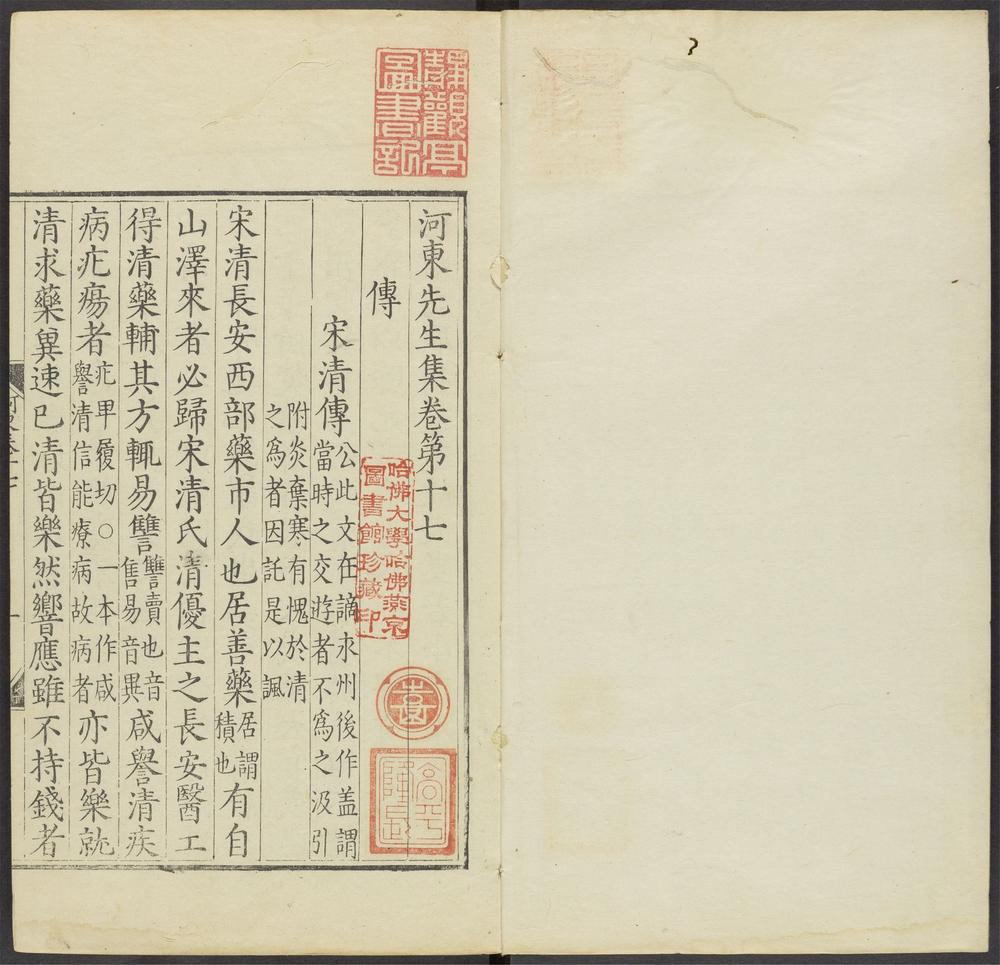 河東先生集卷第十七
傳
宋清傳公此文在謫永州後作盖謂
當時之交遊者不爲之汲引
附炎棄寒有愧於清
之爲者因託是以諷
宋清長安西部藥市人也居善藥居謂積也有自
山澤來者必歸宋清氏清優主之長安醫工
得清藥輔其方輒易讐讐賣也音售易音異咸譽清疾
病疕瘍者疕甲履切○一本作咸譽清信能療病故病者亦皆樂就
清求藥兾速已清皆樂然響應雖不持錢者
靜觀亭
圖書記
哈佛大學哈佛燕京
圖書館珍藏印